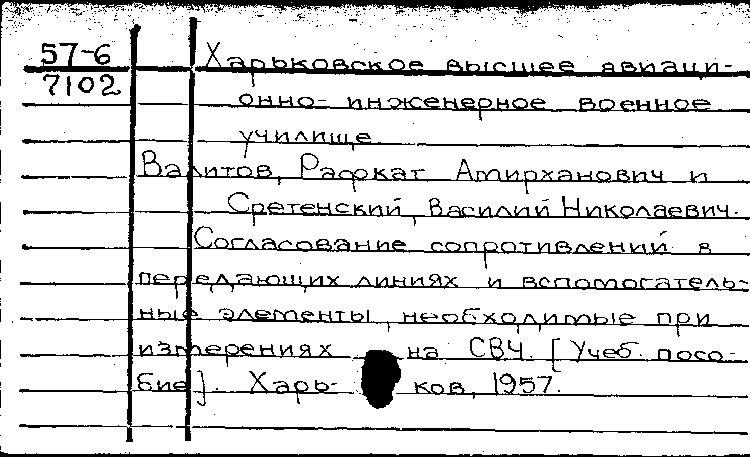 57-6
7102
Харьковское высшее авиаци-
онно-инженерное военное
училище
Валитов, Рафкат Амирханович и
Сретенский, Василий Николаевич.
Согласование сопротивлений в
передающих линиях и вспомогатель-
ные элементы, необходимые при
измерениях на СВЧ. [Учеб. посо-
бие]. Харьков, 1957.